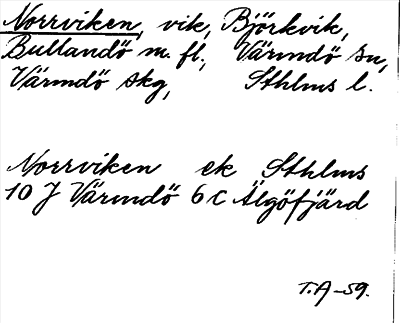 Norrviken, vik, Björkvik,
Bullandö m. fl., Värmdö sn,
Värmdö skg, Sthlms l.
Norrviken ek Sthlms
10 J Värmdö 6 c Älgöfjärd
T.A-59.